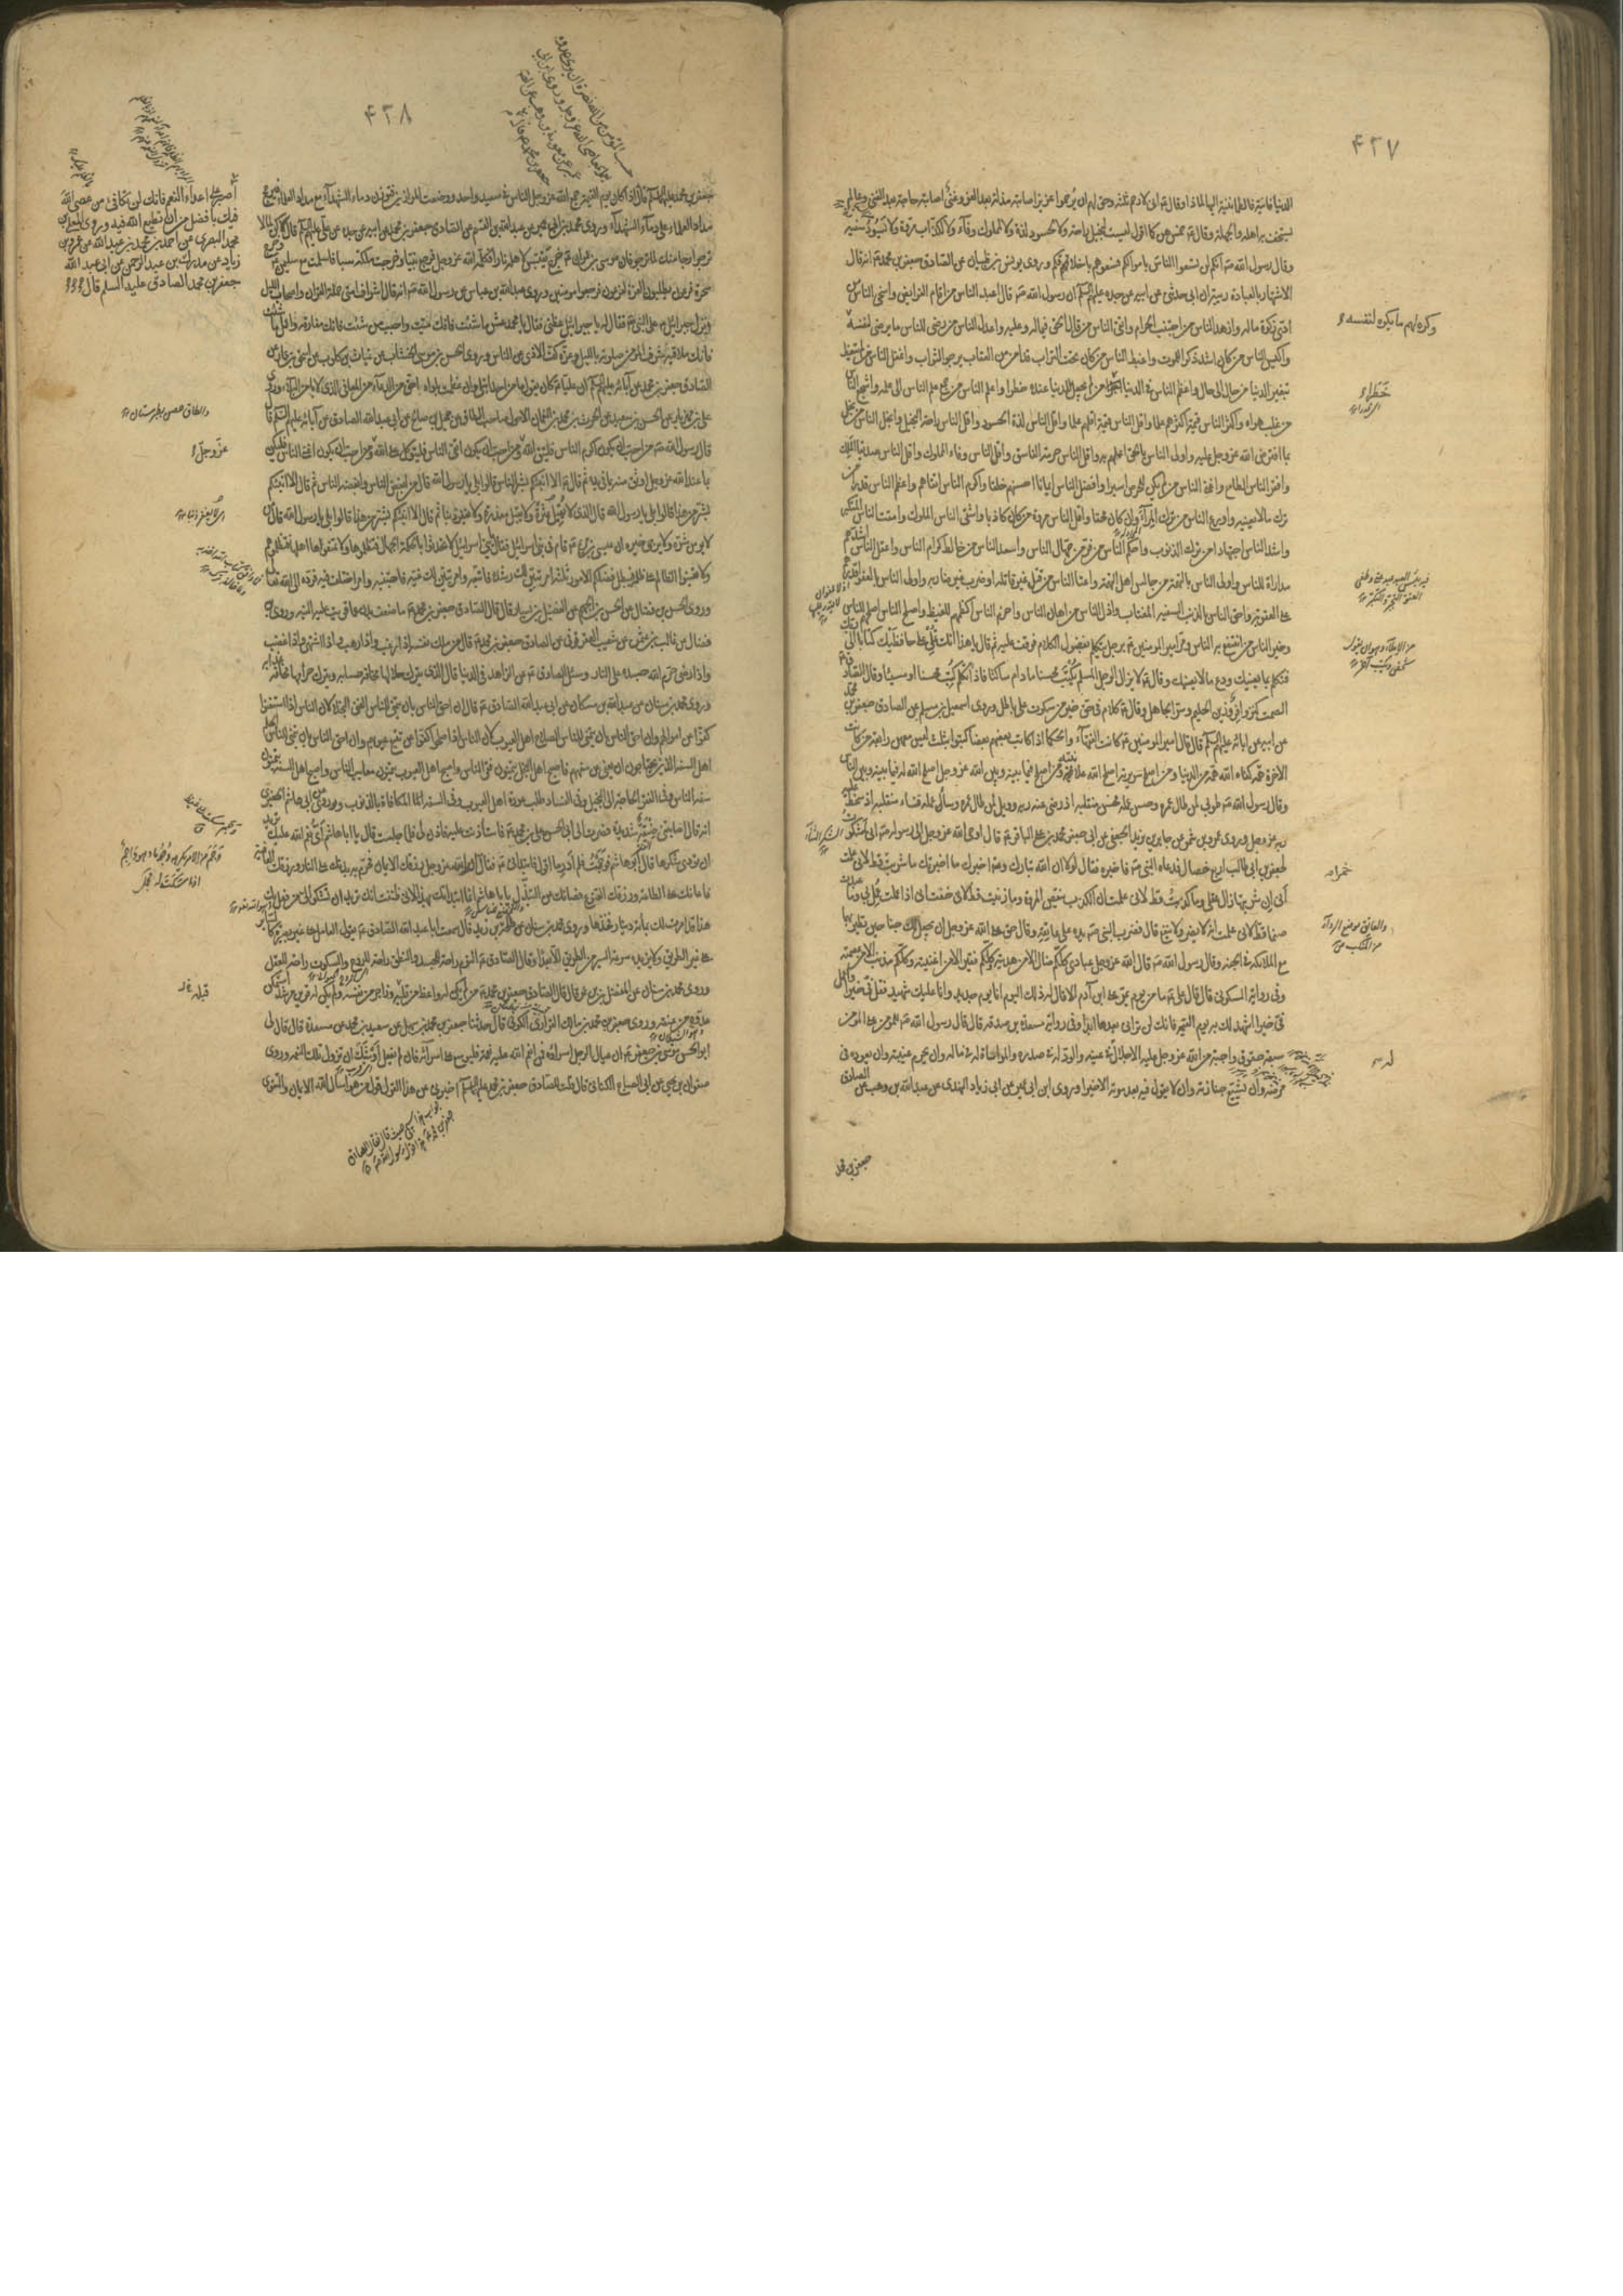 ۴۲۷
الدنيا فانية فالطمانينة اليها لماذا وقال ان لارحم ثلثة وحق لهم ان يرحموا عزيز اصابته مذلة بعد العز وغنى اصابته حاجة بعد الغنى وعالم
يستخف به اهله والجهلة وقال خمس هن كما اقول ليست لبخيل راحة ولا لحسود لذة ولا لملوك وفاء ولا لكذاب مروة ولا يسود سفيه
وقال رسول الله انكم لن تسعوا الناس باموالكم فسعوهم باخلاقكم وروى يونس بن ظبيان عن الصادق جعفر بن محمد انه قال
الاشتهار بالعبادة ريبة ان ابى حدثنى عن ابيه عن جده عليهم السلم ان رسول الله قال اعبد الناس من اقام الفرايض واسخى الناس من
ادى زكوة ماله وازهد الناس من اجتنب الحرام واتقى الناس من قال الحق فيما له وعليه واعدل الناس من رضى للناس ما يرضى لنفسه
وكره لهم ما يكره لنفسه
واكيس الناس من كان اشد ذكرا للموت واغبط الناس من كان تحت التراب قد امن من العقاب يرجو الثواب واغفل الناس من لم يتعظ
بتغير الدنيا من حال الى حال واعظم الناس فى الدنيا خطرا من لم يجعل للدنيا عنده خطرا واعلم الناس من جمع علم الناس الى علمه واشجع الناس
من غلب هواه واكثر الناس قيمة اكثرهم علما واقل الناس قيمة اقلهم علما واقل الناس لذة الحسود واقل الناس راحة البخيل وابخل الناس من بخل
بما افترض الله عز وجل عليه واولى الناس بالحق اعلمهم به واقل الناس حرمة الفاسق واقل الناس وفاء الملوك واقل الناس صديقا الملك
وافقر الناس الطامع واغنى الناس من لم يكن للحرص اسيرا وافضل الناس ايمانا احسنهم خلقا واكرم الناس اتقاهم واعظم الناس قدرا من
ترك ما لا يعنيه واورع الناس من ترك المراء وان كان محقا واقل الناس مروة من كان كاذبا واشقى الناس الملوك وامقت الناس المتكبر
واشد الناس اجتهادا من ترك الذنوب واحكم الناس من فر من جهال الناس واسعد الناس من خالط كرام الناس واعقل الناس اشدهم
مداراة للناس واولى الناس بالتهمة من جالس اهل التهمة واعتا الناس من قتل غير قاتله او ضرب غير ضاربه واولى الناس بالعفو اقدرهم
على العقوبة واحق الناس بالذنب السفيه المغتاب واذل الناس من اهان الناس واحزم الناس اكظمهم للغيظ واصلح الناس اصلحهم للناس
وخير الناس من انتفع به الناس ومر امير المومنين برجل يتكلم بفضول الكلام فوقف عليه ثم قال يا هذا انك تملى على حافظيك كتابا الى ربك
فتكلم بما يعنيك ودع ما لا يعنيك وقال لا يزال الرجل المسلم يكتب محسنا ما دام ساكتا فاذا تكلم كتب محسنا او مسيئا وقال الصادق
الصمت كنز وافر وزين الحليم وستر الجاهل وقال كلام فى حق خير من سكوت على باطل وروى اسمعيل بن مسلم عن الصادق جعفر بن محمد
عن ابيه عن ابائه عليهم السلم قال قال امير المومنين كانت الفقهاء والحكما اذا كاتب بعضهم بعضا كتبوا بثلث ليس معهن رابعة من كانت
الاخرة همه كفاه الله همه من الدنيا ومن اصلح سريرته اصلح الله علانيته ومن اصلح فيما بينه وبين الله عز وجل اصلح الله له فيما بينه وبين الناس
وقال رسول الله طوبى لمن طال عمره وحسن عمله فحسن منقلبه اذ رضى عنه ربه وويل لمن طال عمره وساء عمله فساء منقلبه اذ سخط عليه
ربه عز وجل وروى عمرو بن شمر عن جابر بن يزيد الجعفى عن ابى جعفر محمد بن على الباقر قال اوحى الله عز وجل الى رسوله انى شكرت
لجعفر بن ابى طالب اربع خصال فدعاه النبى فاخبره فقال لولا ان الله تبارك وتعالى اخبرك ما اخبرتك ما شربت خمرا قط لانى علمت
انى ان شربتها زال عقلى وما كذبت قط لانى علمت ان الكذب ينقص المروة وما زنيت قط لانى خفت انى اذا عملت عمل بى وما عبدت
صنما قط لانى علمت انه لا يضر ولا ينفع قال فضرب النبى يده على عاتقه وقال حق على الله عز وجل ان يجعل لك جناحين تطير بهما
مع الملائكة فى الجنة وقال رسول الله قال الله عز وجل عبادى كلكم ضال الا من هديته وكلكم فقير الا من اغنيته وكلكم مذنب الا من عصمته
وفى رواية السكونى قال قال على ما من يوم يمر على ابن آدم الا قال له ذلك اليوم انا يوم جديد وانا عليك شهيد فقل فى خيرا واعمل
فى خيرا اشهد لك به يوم القيمة فانك لن ترانى بعدها ابدا وفى رواية مسعدة بن صدقة قال قال رسول الله للمومن على المومن
سبعة حقوق واجبة من الله عز وجل عليه الاجلال له فى عينه والود له فى صدره والمواساة له فى ماله وان يحرم غيبته وان يعوده فى
مرضه وان يشيع جنازته وان لا يقول فيه بعد موته الا خيرا وروى ابن ابى عمير عن ابى زياد النهدى عن عبد الله بن وهب عن الصادق
جعفر بن محمد
۴۲۸
جعفر بن محمد عليهما السلم قال اذا كان يوم القيمة جمع الله عز وجل الناس فى صعيد واحد ووضعت الموازين فتوزن دماء الشهداء مع مداد العلماء فيرجح
مداد العلماء على دماء الشهداء وروى محمد بن ابى عمير عن عبد الله بن القسم عن الصادق جعفر بن محمد عن ابيه عن جده عن على عليهم السلم قال كن لما لا
ترجو ارجا منك لما ترجو فان موسى بن عمران خرج يقتبس لاهله نارا فكلمه الله عز وجل فرجع نبيا وخرجت ملكة سبا فاسلمت مع سليمن وخرج
سحرة فرعون يطلبون العزة لفرعون فرجعوا مومنين وروى عبد الله بن عباس عن رسول الله انه قال اشراف امتى حملة القران واصحاب الليل
ونزل جبرائيل على النبى فقال له يا جبرائيل عظنى فقال يا محمد عش ما شئت فانك ميت واحبب من شئت فانك مفارقه واعمل ما شئت
فانك ملاقيه شرف المومن صلوته بالليل وعزه كف الاذى عن الناس وروى الحسن بن موسى الخشاب عن غياث بن كلوب عن اسحق بن عمار عن
الصادق جعفر بن محمد عن آبائه عليهم السلم ان عليا كان يقول ما من احد ابتلى وان عظمت بلواه باحق من الدعاء من المعافى الذى لا يامن البلاء وروى
على بن مهزيار عن الحسن بن سعيد عن الحرث بن محمد بن النعمان الاحول صاحب الطاق عن جميل بن صالح عن ابى عبد الله الصادق عن آبائه عليهم السلم قال
قال رسول الله من احب ان يكون اكرم الناس فليتق الله ومن احب ان يكون اتقى الناس فليتوكل على الله ومن احب ان يكون اغنى الناس فليكن
عز وجل
بما عند الله عز وجل اوثق منه بما فى يده ثم قال الا انبئكم بشر الناس قالوا بلى يا رسول الله قال من ابغض الناس وابغضه الناس ثم قال الا انبئكم
بشر من هذا قالوا بلى يا رسول الله قال الذى لا يقيل عثرة ولا يقبل معذرة ولا يغفر ذنبا ثم قال الا انبئكم بشر من هذا قالوا بلى يا رسول الله قال من
لا يومن شره ولا يرجى خيره ان عيسى بن مريم قام فى بنى اسرائيل فقال يا بنى اسرائيل لا تحدثوا بالحكمة الجهال فتظلموها ولا تمنعوها اهلها فتظلموهم
ولا تعينوا الظالم على ظلمه فيبطل فضلكم الامور ثلثة امر تبين لك رشده فاتبعه وامر تبين لك غيه فاجتنبه وامر اختلف فيه فرده الى الله تعالى
وروى الحسن بن على بن فضال عن الحسن بن الجهم عن الفضيل بن يسار قال قال الصادق جعفر بن محمد ما ضعف بدن عما قويت عليه النية وروى
فضال عن غالب بن عثمن عن شعيب العقرقوفى عن الصادق جعفر بن محمد قال من ملك نفسه اذا رغب واذا رهب واذا اشتهى واذا غضب
واذا رضى حرم الله جسده على النار وسئل الصادق عن الزاهد فى الدنيا قال الذى يترك حلالها مخافة حسابه ويترك حرامها مخافة عذابه
وروى محمد بن سنان عن عبد الله بن مسكان عن ابى عبد الله الصادق قال ان احق الناس بان يتمنى للناس الغنى البخلاء لان الناس اذا استغنوا
كفوا عن اموالهم وان احق الناس بان يتمنى للناس الصلاح اهل العيوب لان الناس اذا صلحوا كفوا عن تتبع عيوبهم وان احق الناس بان يتمنى للناس الحلم
اهل السفه الذين يحتاجون ان يعفى عن سفههم فاصبح اهل البخل يتمنون فقر الناس واصبح اهل العيوب يتمنون معايب الناس واصبح اهل السفه يتمنون
سفه الناس وفى الفقر الحاجة الى البخيل وفى الفساد طلب عورة اهل العيوب وفى السفه المكافاة بالذنوب وروى عن ابى هاشم الجعفرى
انه قال اصابتنى ضيقة شديدة فصرت الى ابى الحسن على بن محمد فاستاذنت عليه فاذن لى فلما جلست قال يا ابا هاشم اى نعم الله عليك تريد
ان تودى شكرها قال ابو هاشم فوجمت فلم ادر ما اقول له فابتدانى فقال ان الله عز وجل رزقك الايمان فحرم به بدنك على النار ورزقك العافية
فاعانك على الطاعة ورزقك القنوع فصانك عن التبذل يا ابا هاشم انما ابتدأتك بهذا لانى ظننت انك تريد ان تشكو لى من فعل بك
هذا قد امرت لك بمائة دينار فخذها وروى محمد بن سنان عن طلحة بن زيد قال سمعت ابا عبد الله الصادق يقول العامل على غير بصيرة كالسائر
على غير الطريق ولا يزيده سرعة السير من الطريق الا بعدا وقال الصادق النوم راحة للجسد والنطق راحة للروح والسكوت راحة للعقل
وروى محمد بن سنان عن المفضل بن عمر قال قال الصادق جعفر بن محمد من لم يكن له واعظ من قلبه وزاجر من نفسه ولم يكن له قرين مرشد استمكن
عدوه من عنقه وروى جعفر بن محمد بن مالك الفزارى الكوفى قال حدثنا جعفر بن محمد بن سهل عن سعيد بن محمد عن مسعدة قال قال لى
ابو الحسن موسى بن جعفر ان عيال الرجل اسراؤه فمن انعم الله عليه نعمة فليوسع على اسرائه فان لم يفعل اوشك ان تزول تلك النعمة وروى
صفوان بن يحيى عن ابى الصباح الكنانى قال قلت للصادق جعفر بن محمد عليهما السلم اخبرنى عن هذا القول قول من هو اسأل الله الايمان والتقوى
اصبر على اعداء النعم فانك لن تكافئ من عصى الله
فيك بافضل من ان تطيع الله فيه وروى المعلى بن
محمد البصرى عن احمد بن محمد بن عبد الله عن عمرو بن
زياد عن مدرك بن عبد الرحمن عن ابى عبد الله
جعفر بن محمد الصادق عليه السلم قال